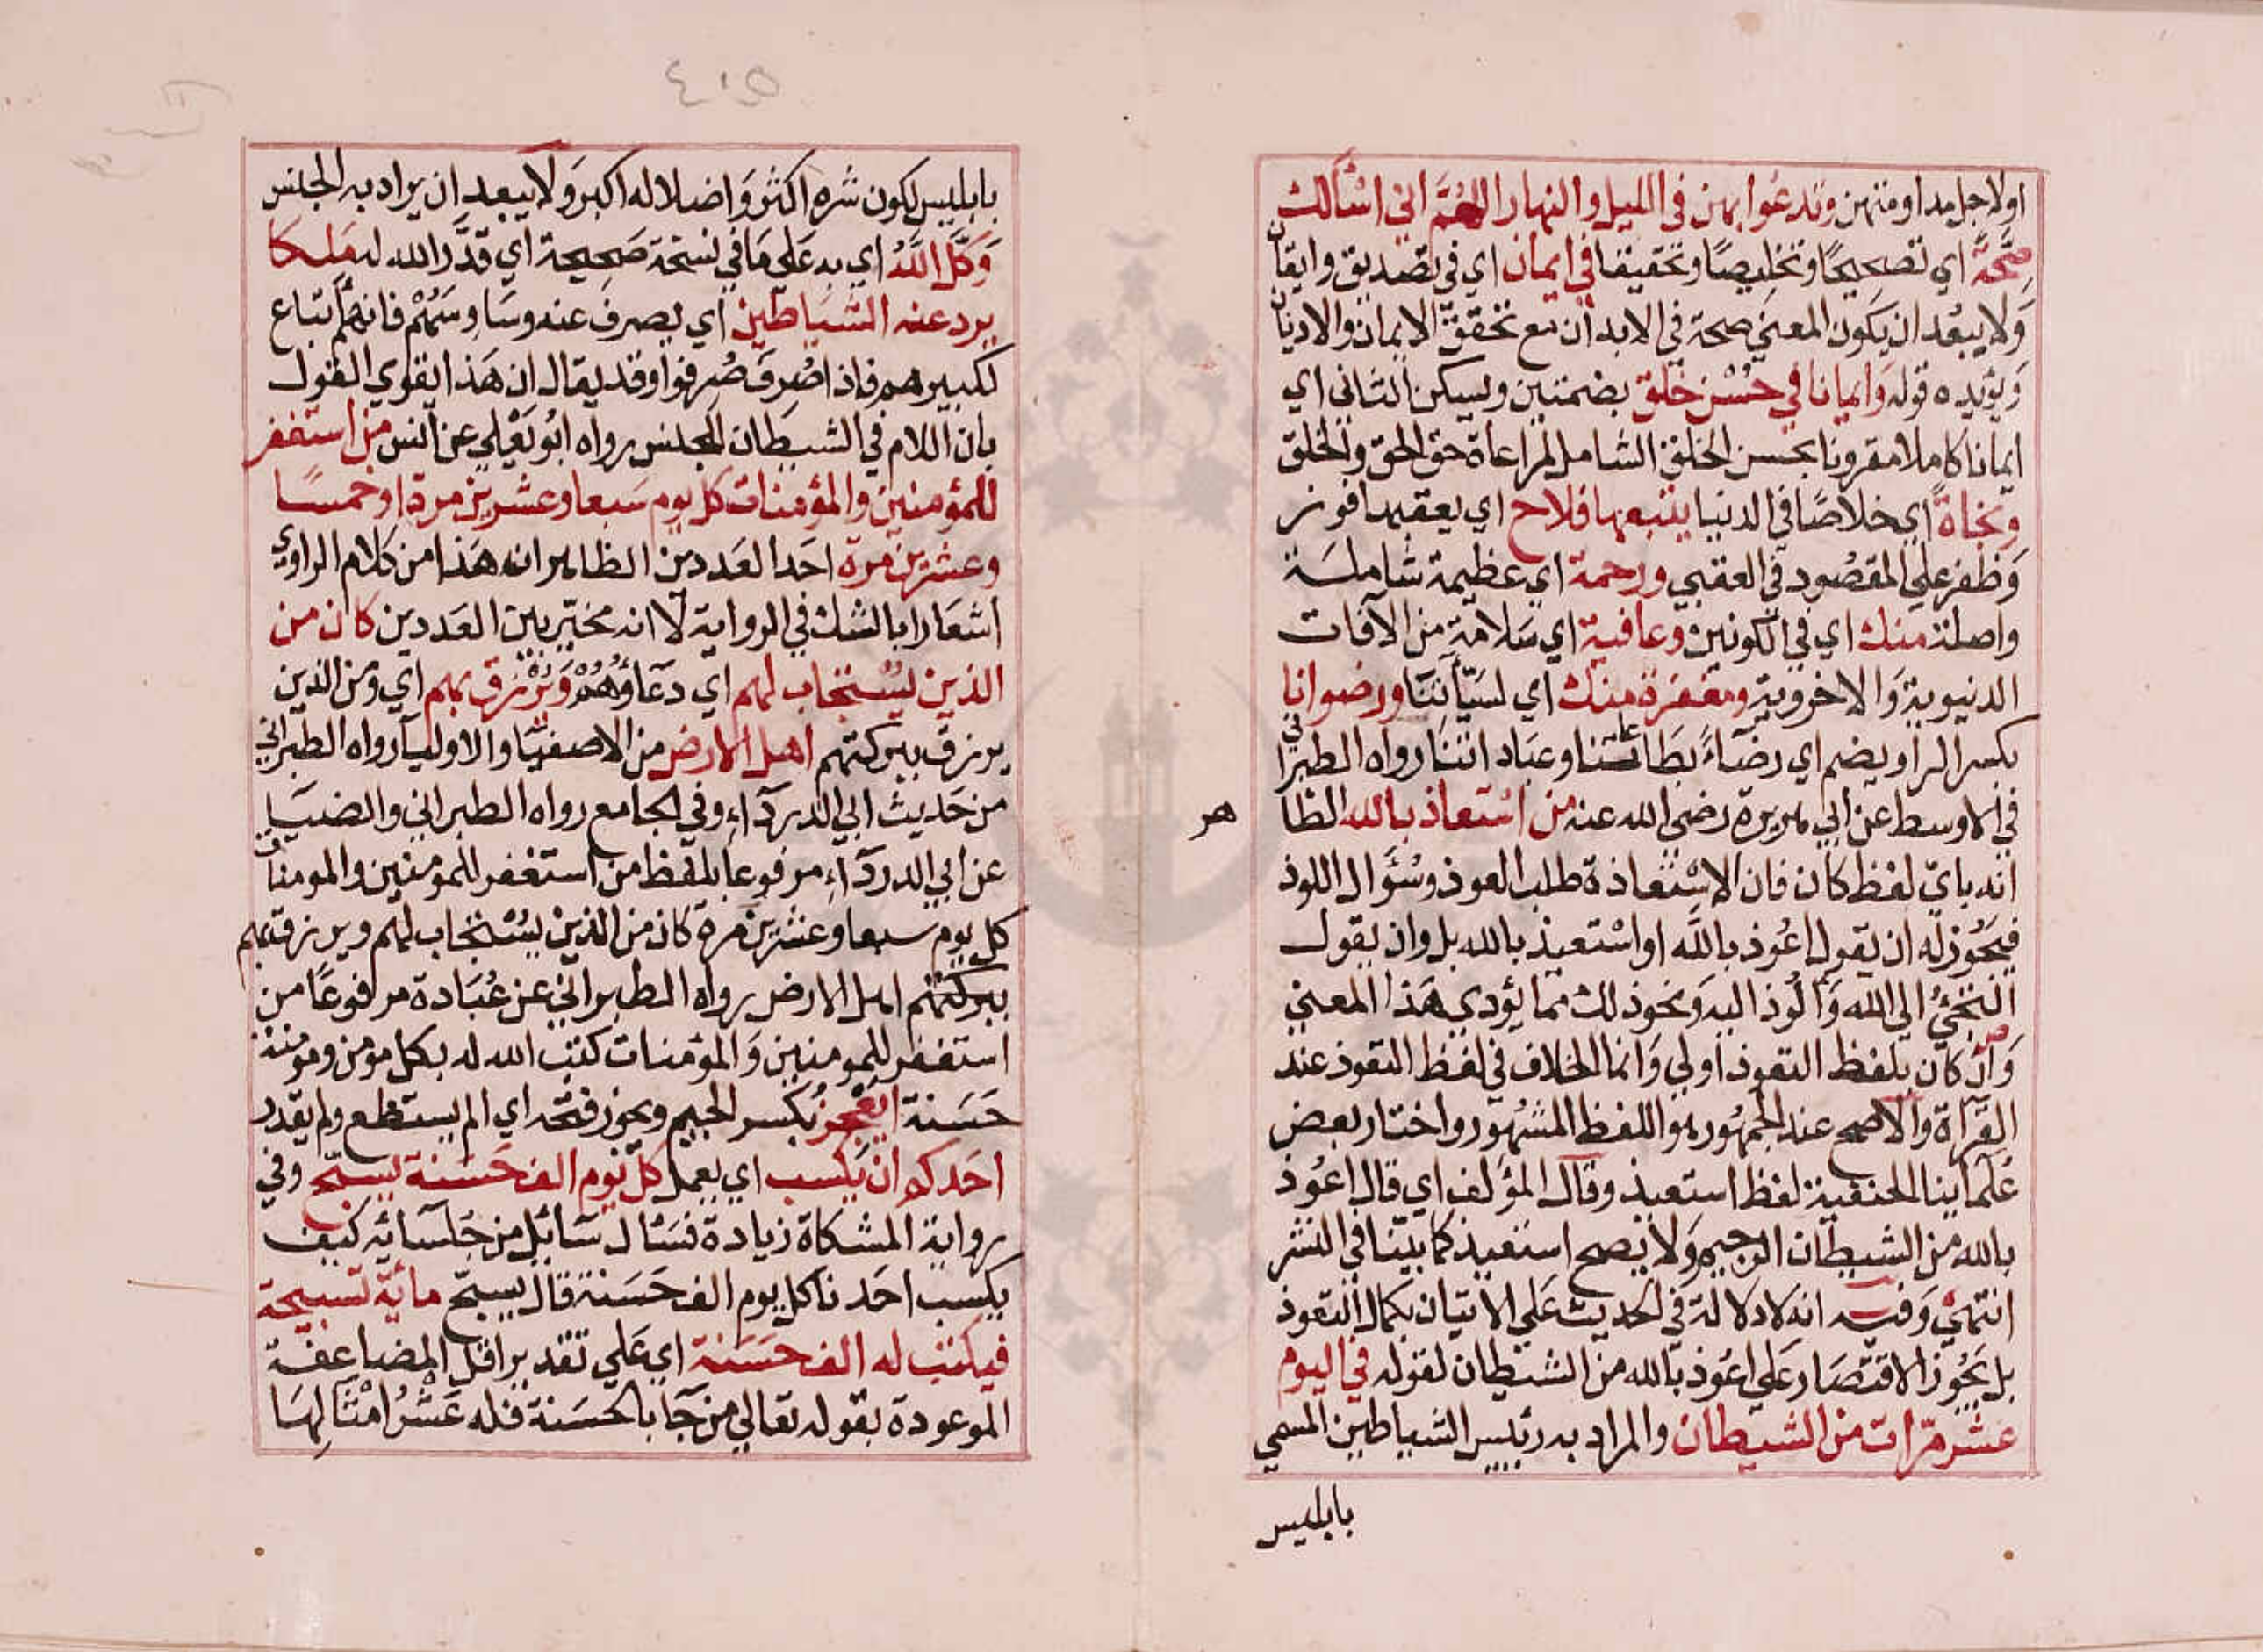 اولاجل مداومتهن وتدعوا بهن في الليل والنهار اللهم اني اسألك
صحة اي تصحيحا وتخليصا وتحقيقا في ايمان اي في تصديق وايقان
ولا يبعد ان يكون المعني صحة في الابدان مع تحقق الايمان والاديان
ويؤيده قوله وايمانا في حسن خلق بضمتين ويسكن الثاني اي
ايمانا كاملا مقرونا بحسن الخلق الشامل لمراعاة حق الحق والخلق
ونجاة اي خلاصا في الدنيا يتبعها فلاح اي يعقبها فوز
وظفر علي المقصود في العقبي ورحمة اي عظيمة شاملة
واصلة منك اي في الكونين وعافية اي سلامة من الآفات
الدنيوية والاخروية ومغفرة منك اي لسيآتنا ورضوانا
بكسر الرا ويضم اي رضاء بطاعتنا وعباداتنا رواه الطبراني
في الاوسط عن ابي هريرة رضي الله عنه من استعاذ بالله الظا
هر
انه باي لفظ كان فان الاستعاذة طلب العوذ وسؤال اللوذ
فيجوز له ان يقول اعوذ بالله او استعيذ بالله بل وان يقول
التجئ الي الله والوذ اليه ونحوذلك مما يؤدي هذا المعني
وان كان بلفظ التعوذ اولي وانما الخلاف في لفظ التعوذ عند
القرآة والاصح عند الجمهور هو اللفظ المشهور واختار بعض
علمآينا الحنفية لفظ استعيذ وقال المؤلف اي قال اعوذ
بالله من الشيطان الرجيم ولا يصح استعيذ كما بينا في النشر
انتهي وفيه انه لا دلالة في الحديث علي الاتيان بكمال التعوذ
بل يجوز الاقتصار علي اعوذ بالله من الشيطان لقوله في اليوم
عشر مرات من الشيطان والمراد به رئيس الشياطين المسمي
بابليس
بابليس لكون شره اكثر واضلاله اكبر ولا يبعد ان يراد به الجنس
وكل الله اي به علي ما في نسخة صحيحة اي قدر الله له ملكا
يرد عنه الشياطين اي يصرف عنه وساوسهم فانهم اتباع
لكبيرهم فاذا صرف صرفوا وقد يقال ان هذا يقوي القول
بان اللام في الشيطان للجنس رواه ابو يعلي عن انس من استغفر
للمؤمنين والمؤمنات كل يوم سبعا وعشرين مرة او خمسا
وعشرين مرة احد العددين الظاهر انه هذا من كلام الراوي
اشعارا بالشك في الرواية لا انه مخير بين العددين كان من
الذين يستجاب لهم اي دعاؤهم ويرزق بهم اي ومن الذين
يرزق ببركتهم اهل الارض من الاصفيا والاوليآ رواه الطبراني
من حديث ابي الدردآء وفي الجامع رواه الطبراني والضيا
عن ابي الدردآء مرفوعا بلفظ من استغفر للمومنين والمومنات
كل يوم سبعا وعشرين مرة كان من الذين يستجاب لهم ويرزق بهم
ببركتهم اهل الارض رواه الطبراني عن عبادة مرفوعا من
استغفر للمومنين والمؤمنات كتب الله له بكل مومن ومومنة
حسنة ايعجز بكسر الجيم ويجوز فتحه اي الم يستطع ولم يقدر
احدكم ان يكسب اي يعمل كل يوم الف حسنة يسبح وفي
رواية المشكاة زيادة فسئال سائل من جلسائه كيف
يكسب احدنا كل يوم الف حسنة قال يسبح مائة تسبيحة
فيكتب له الف حسنة اي علي تقدير اقل المضاعفة
الموعودة بقوله تعالي من جآ بالحسنة فله عشر امثالها